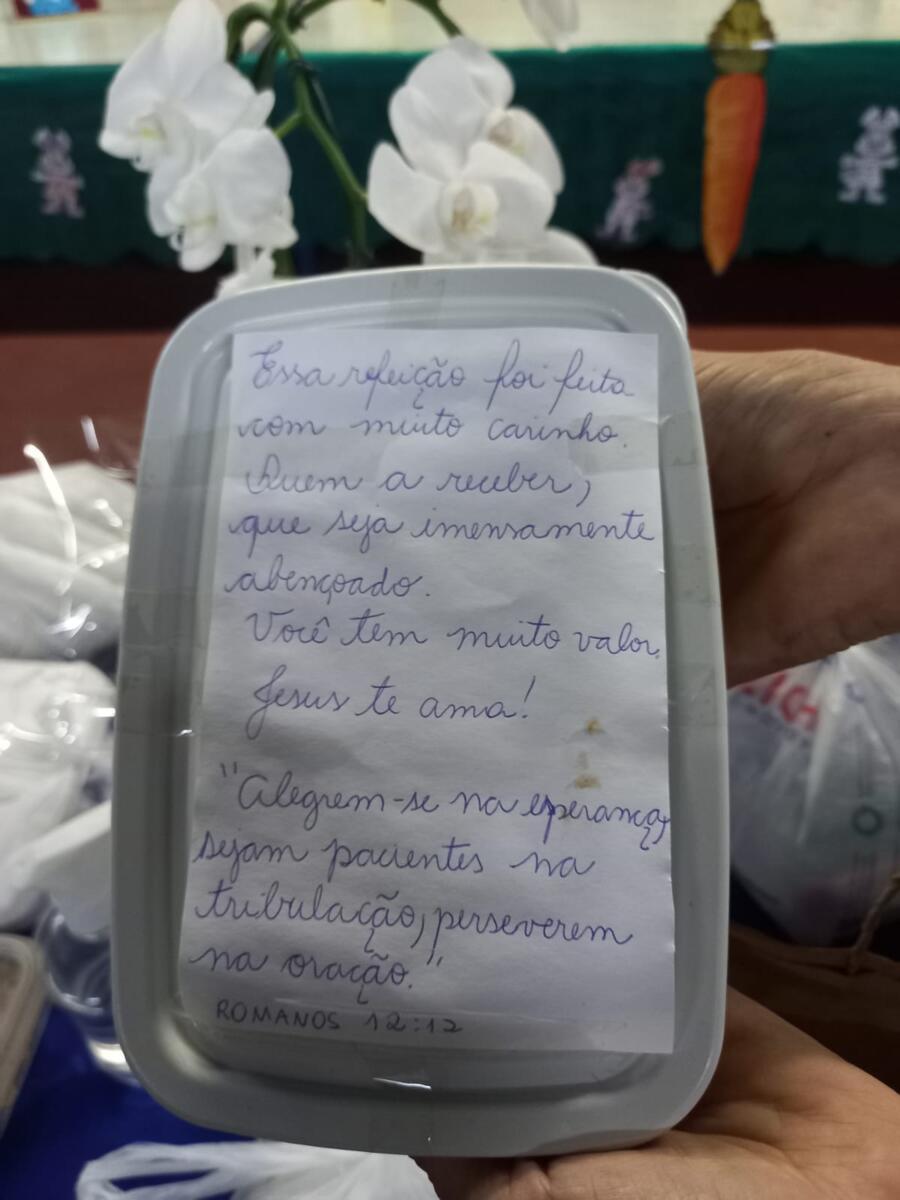 Essa refeição foi feita
com muito carinho.
Quem a receber,
que seja imensamente
abençoado.
Você tem muito valor.
Jesus te ama!
"Alegrem-se na esperança,
sejam pacientes na
tribulação, perseverem
na oração."
ROMANOS 12:12